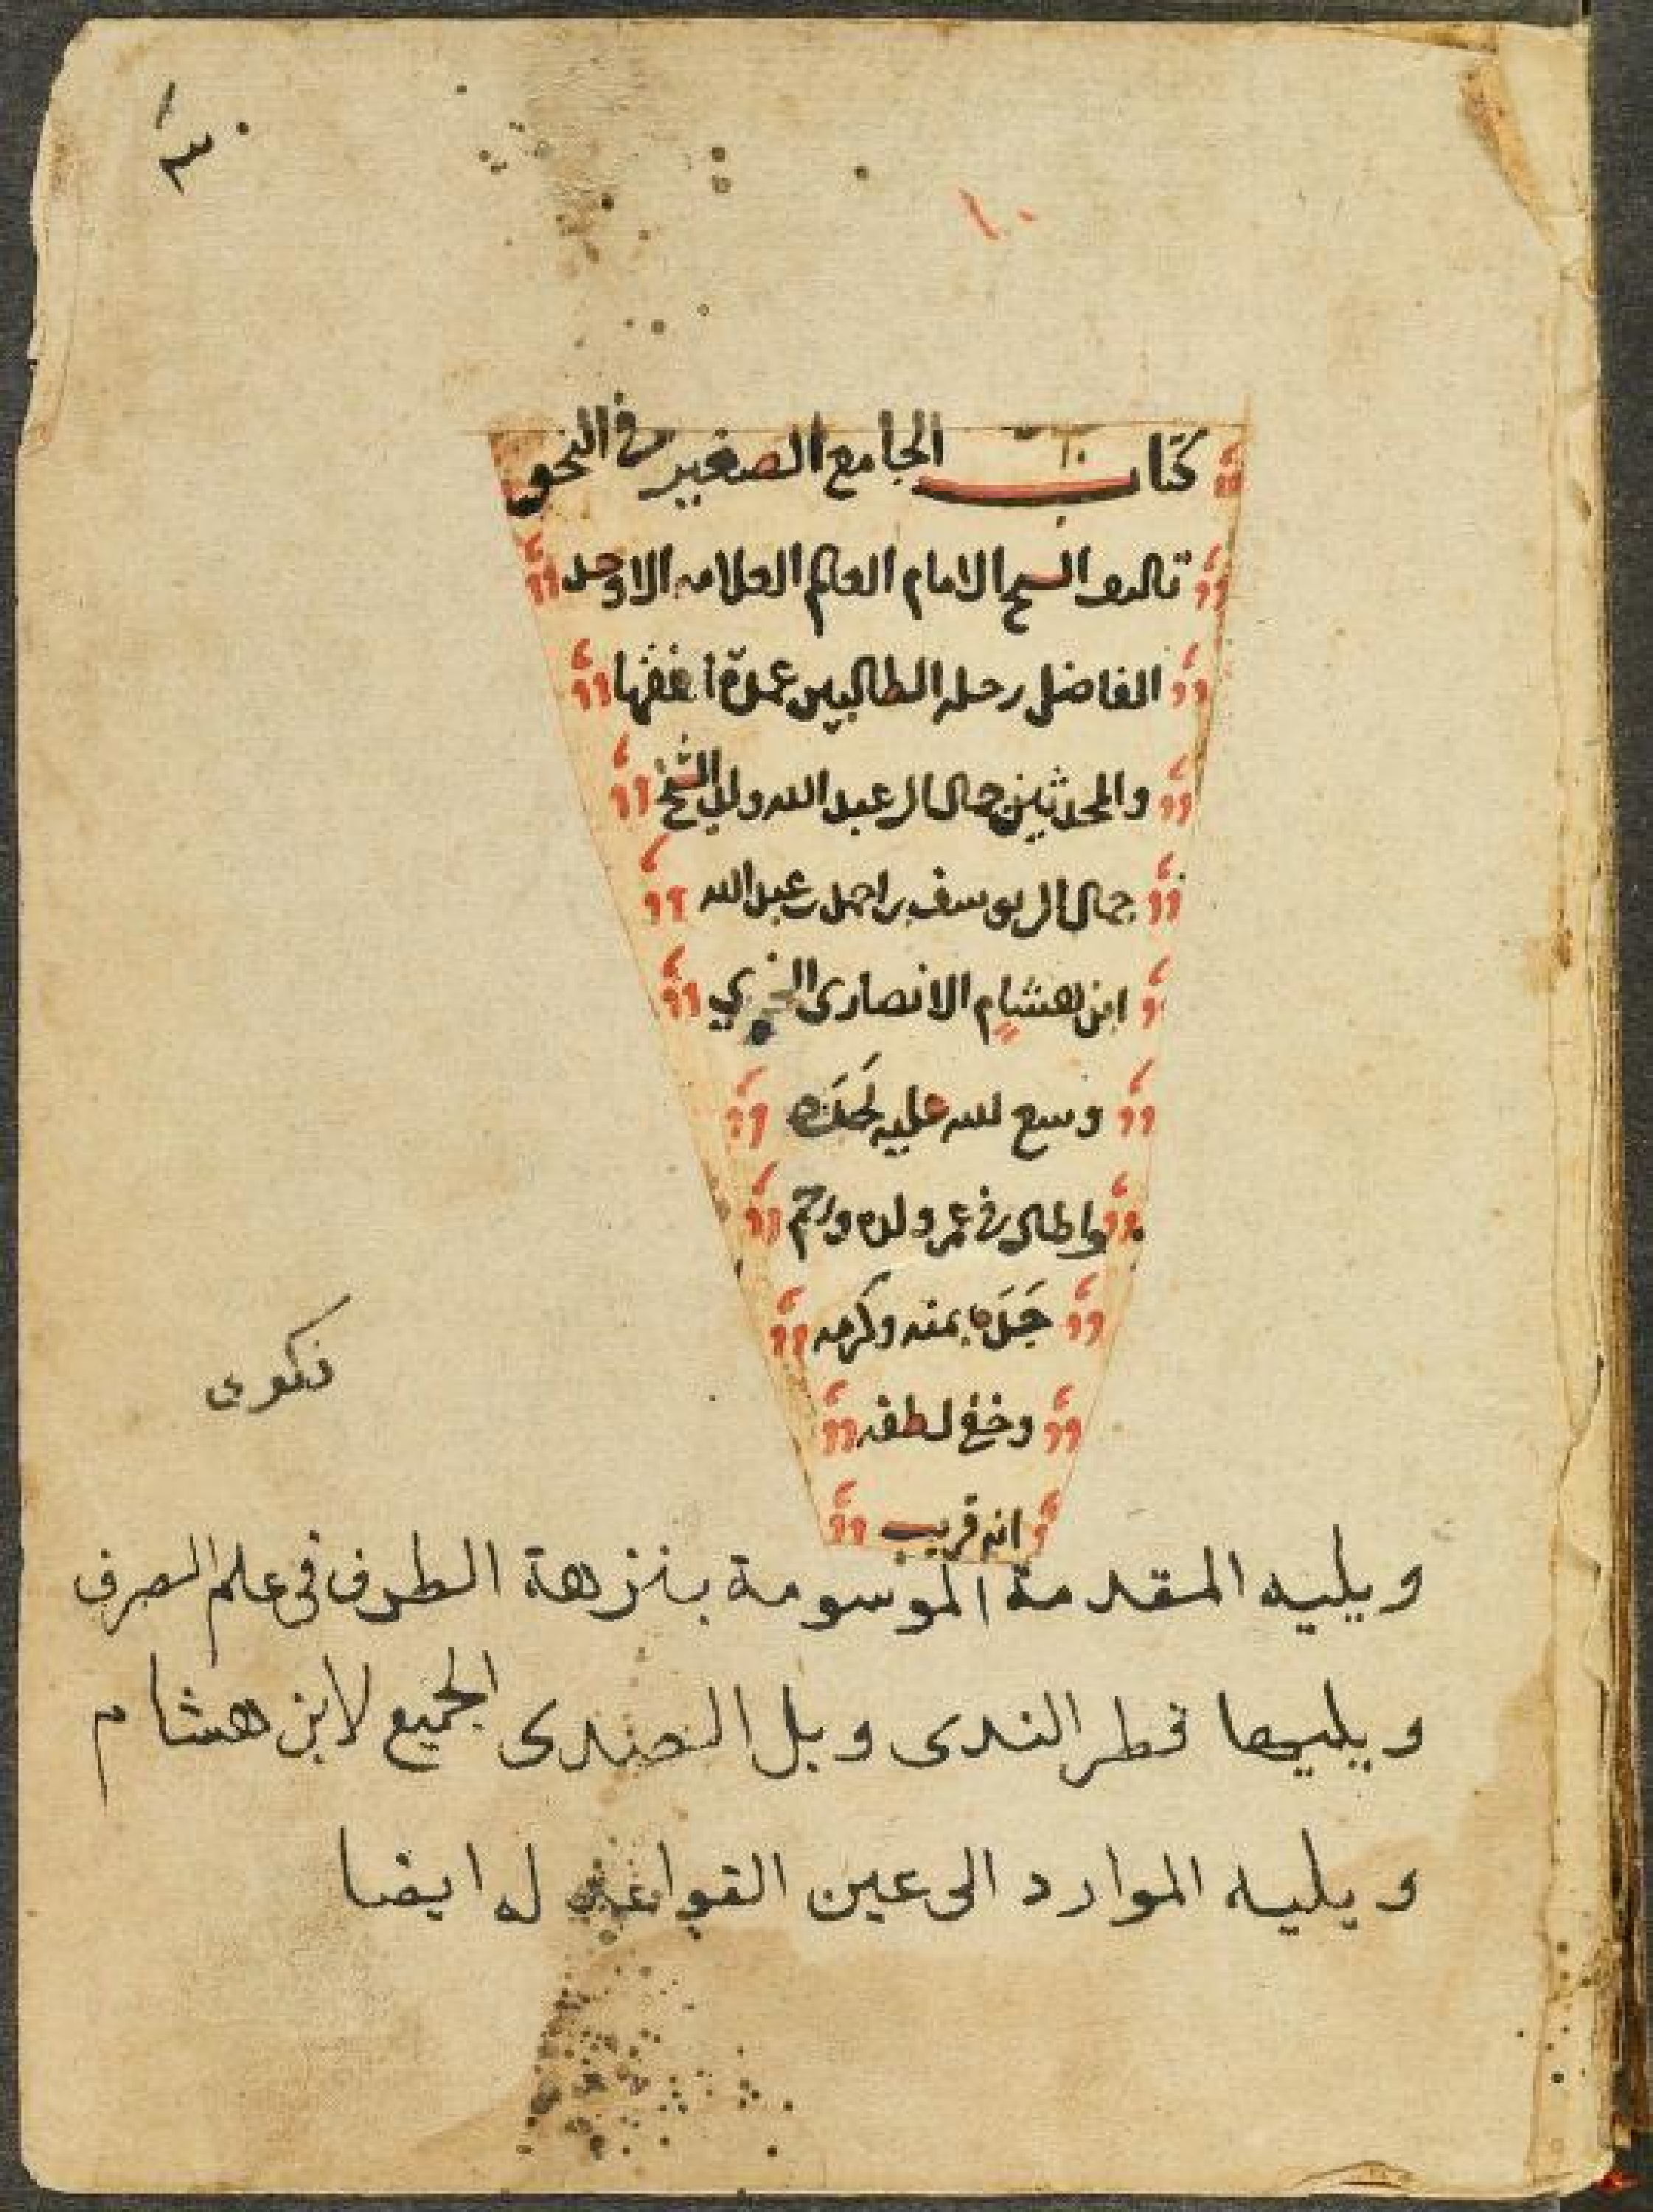 ١٠
كتاب الجامع الصغير في النحو
تاليف الشيخ الامام العالم العلامه الاوحد
الفاضل رحله الطالبين عمدة الفقها
والمحدثين جمال ال عبد الله ولد الشيخ
جمال ال يوسف بن احمد بن عبد الله
ابن هشام الانصارى
وسع الله عليه لحده
واطال في عمر ولده ورحم
جده بمنه وكرمه
وخفي لطفه
انه قريب
ويليه المقدمة الموسومة بنزهة الطرف فى علم الصرف
ويليها قطر الندى وبل الصندى الجميع لابن هشام
ويليه الموارد الى عين القواعد له ايضا